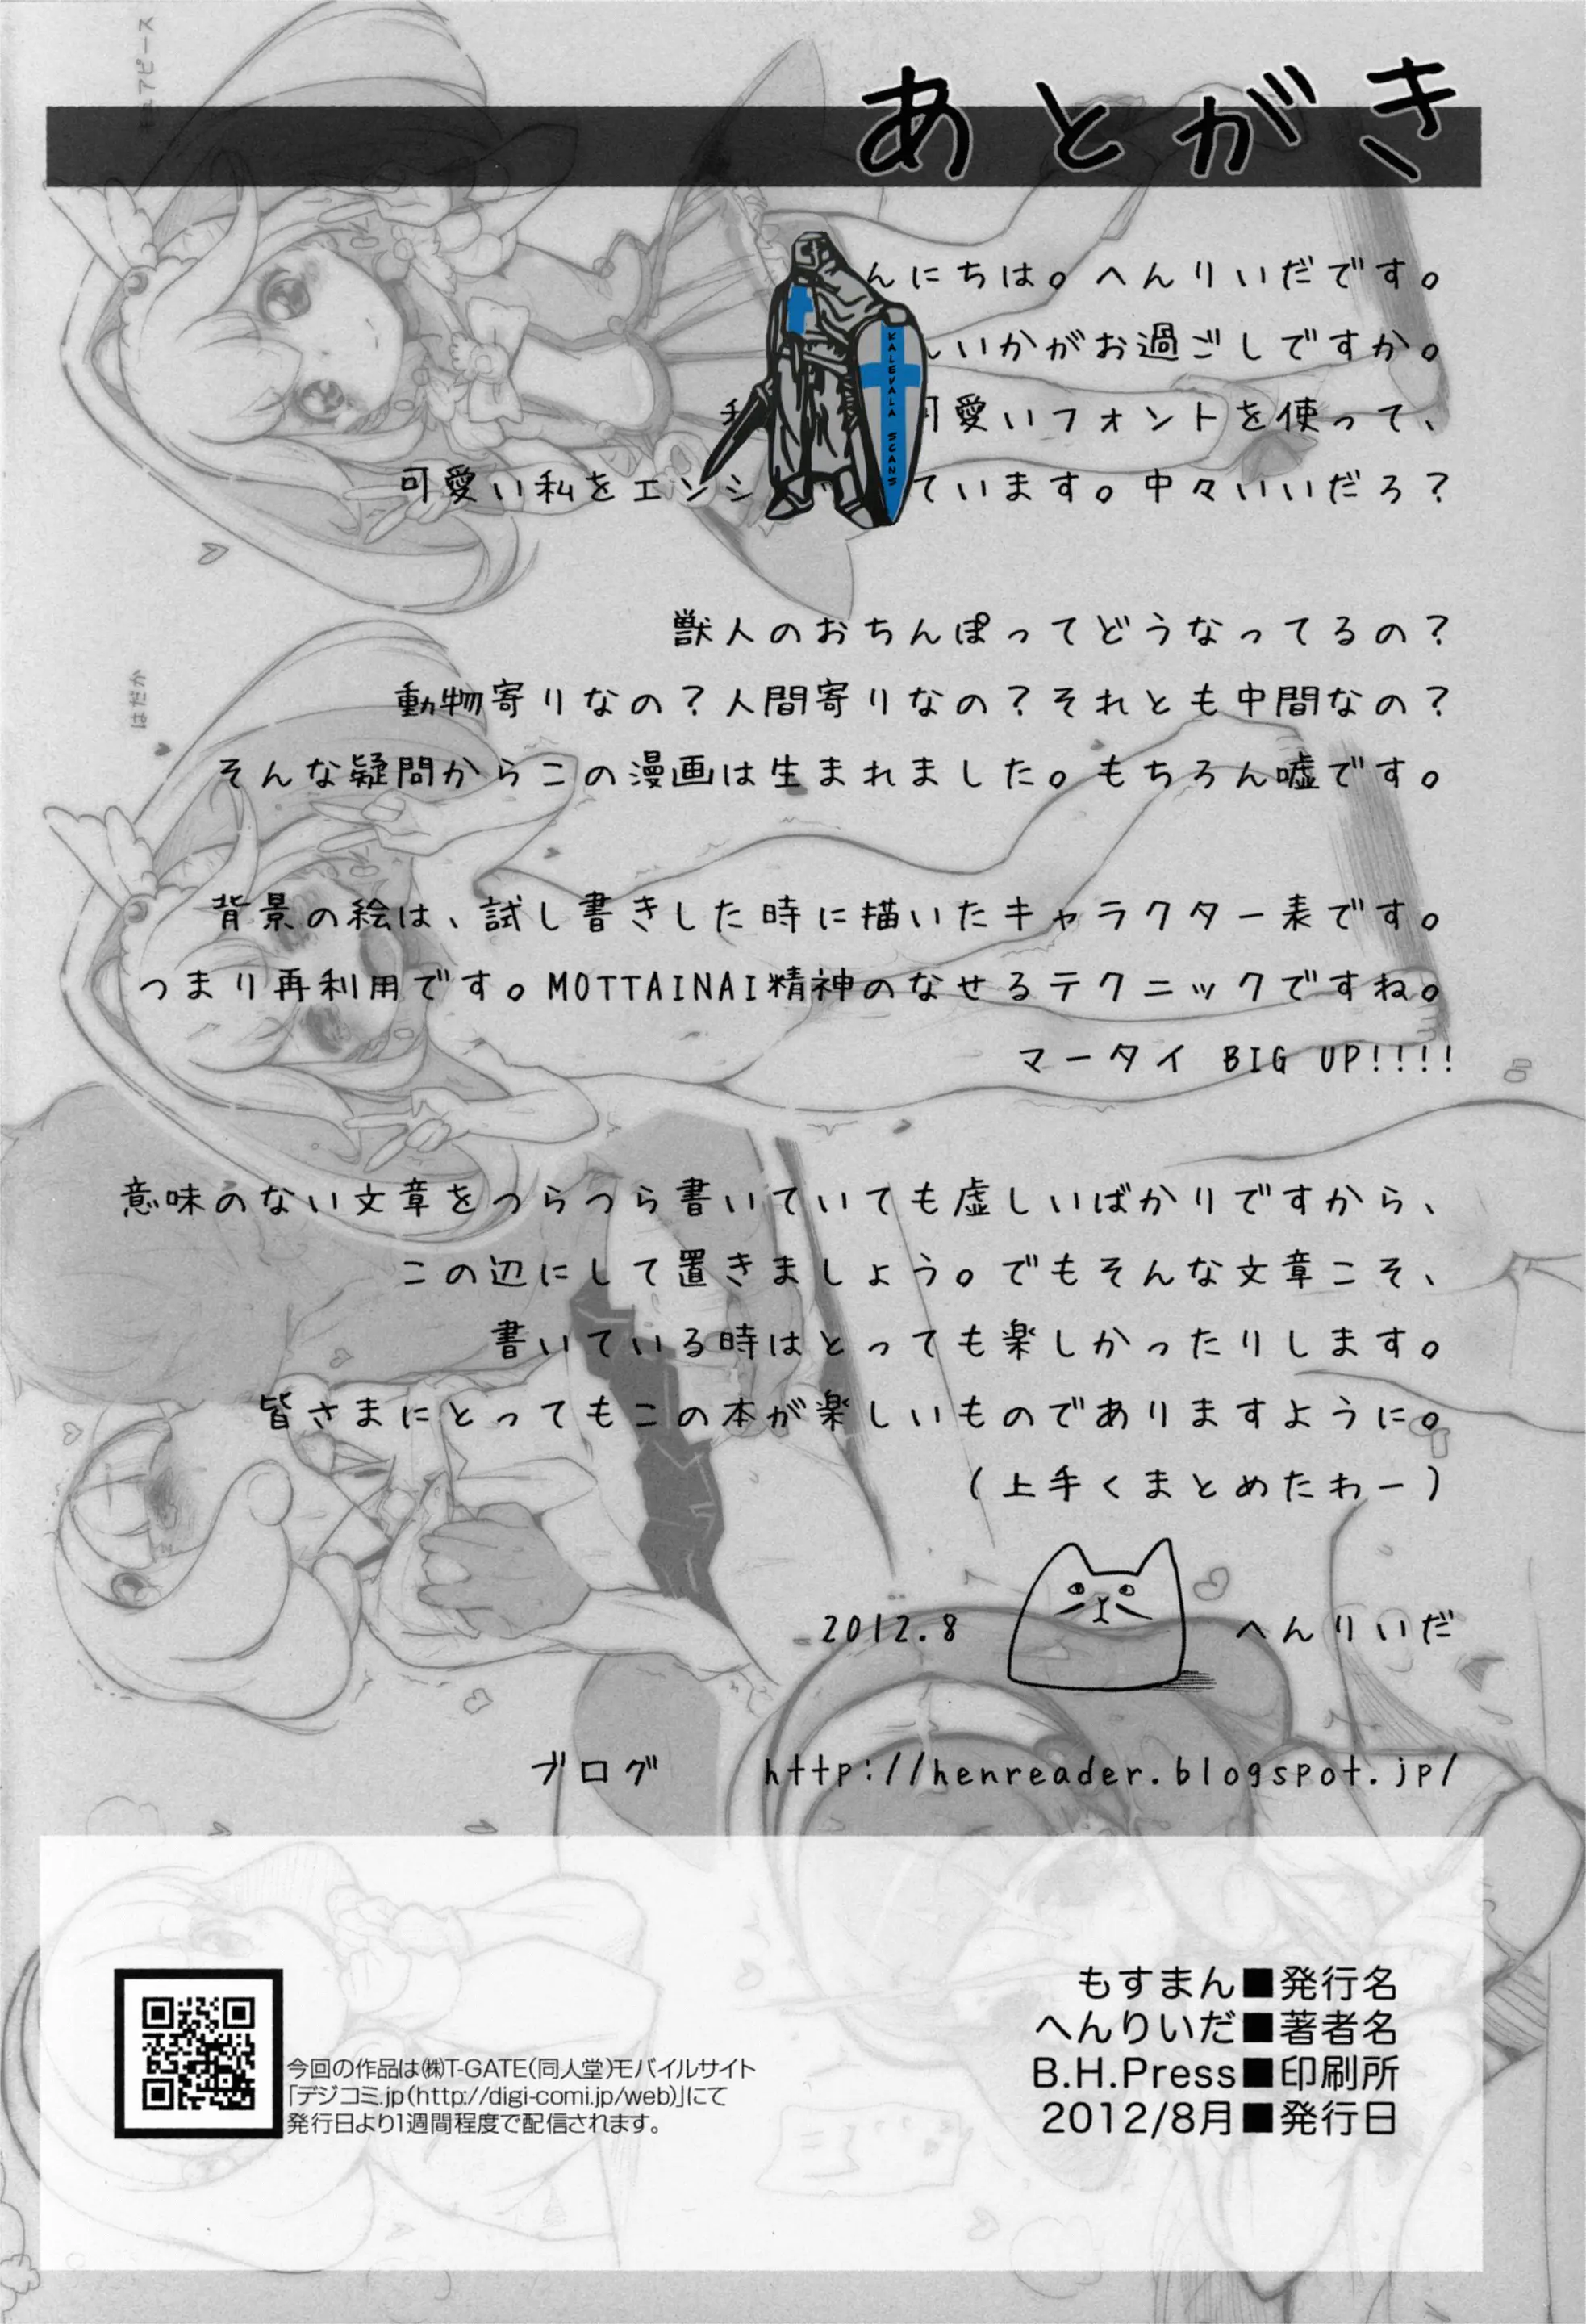 あとがき
んにちは。へんりいだです。
いかがお過ごしですか。
可愛いフォントを使って、
可愛い私をエンジ ています。中々いいだろ?
KALEVALA SCANS
獣人のおちんぽってどうなってるの?
動物寄りなの?人間寄りなの?それとも中間なの?
そんな疑問からこの漫画は生まれました。もちろん嘘です。
はだか
背景の絵は、試し書きした時に描いたキャラクター表です。
つまり再利用です。MOTTAINAI精神のなせるテクニックですね。
マータイ BIG UP!!!!
意味のない文章をつらつら書いていても虚しいばかりですから、
この辺にして置きましょう。でもそんな文章こそ、
書いている時はとっても楽しかったりします。
皆さまにとってもこの本が楽しいものでありますように。
(上手くまとめたわー)
2012.8 へんりいだ
ブログ http://henreader.blogspot.jp/
もすまん■発行名
へんりいだ■著者名
B.H.Press■印刷所
2012/8月■発行日
今回の作品は㈱T-GATE(同人堂)モバイルサイト
「デジコミ.jp(http://digi-comi.jp/web)」にて
発行日より1週間程度で配信されます。